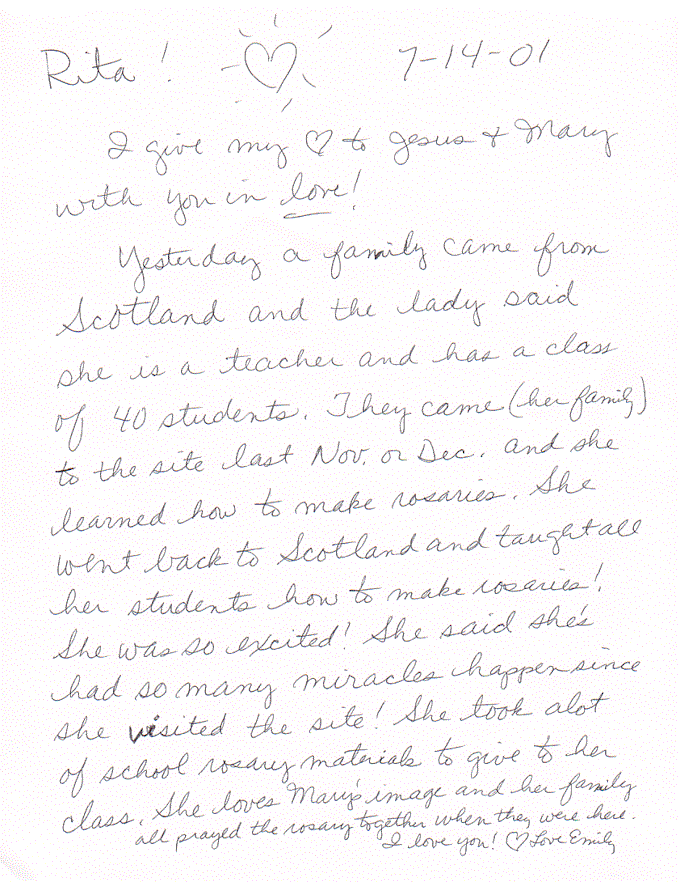 Rita! ♡ 7-14-01
I give my ♡ to Jesus & Mary
with you in love!
Yesterday a family came from
Scotland and the lady said
she is a teacher and has a class
of 40 students. They came (her family)
to the site last Nov. or Dec. and she
learned how to make rosaries. She
went back to Scotland and taught all
her students how to make rosaries!
She was so excited! She said she's
had so many miracles happen since
she visited the site! She took alot
of school rosary materials to give to her
class. She loves Mary's image and her family
all prayed the rosary together when they were here.
I love you! ♡ Love Emily